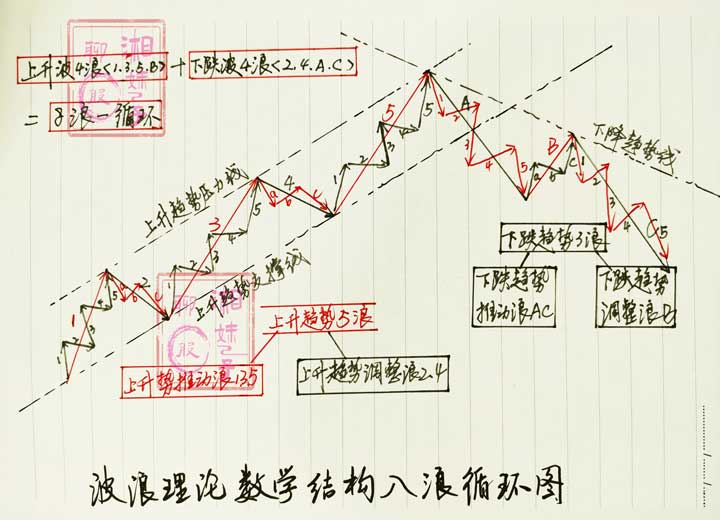 上升波4浪<1.3.5.B> + 下跌波4浪<2.4.A.C>
= 8浪一循环
湘妹子
聊股
上升趋势压力线
下降趋势线
上升趋势支撑线
1 2 3 4 5
1
a b c
2
1 2 3 4 5
3
a b c
4
1 2 3 4 5
5
1 2 3 4 5
A
a b c
B
1 2 3 4 5
C
下跌趋势3浪
下跌趋势
推动浪AC
下跌趋势
调整浪B
湘妹子
聊股
上升趋势5浪
上升势推动浪135
上升趋势调整浪2.4
波浪理论数学结构八浪循环图